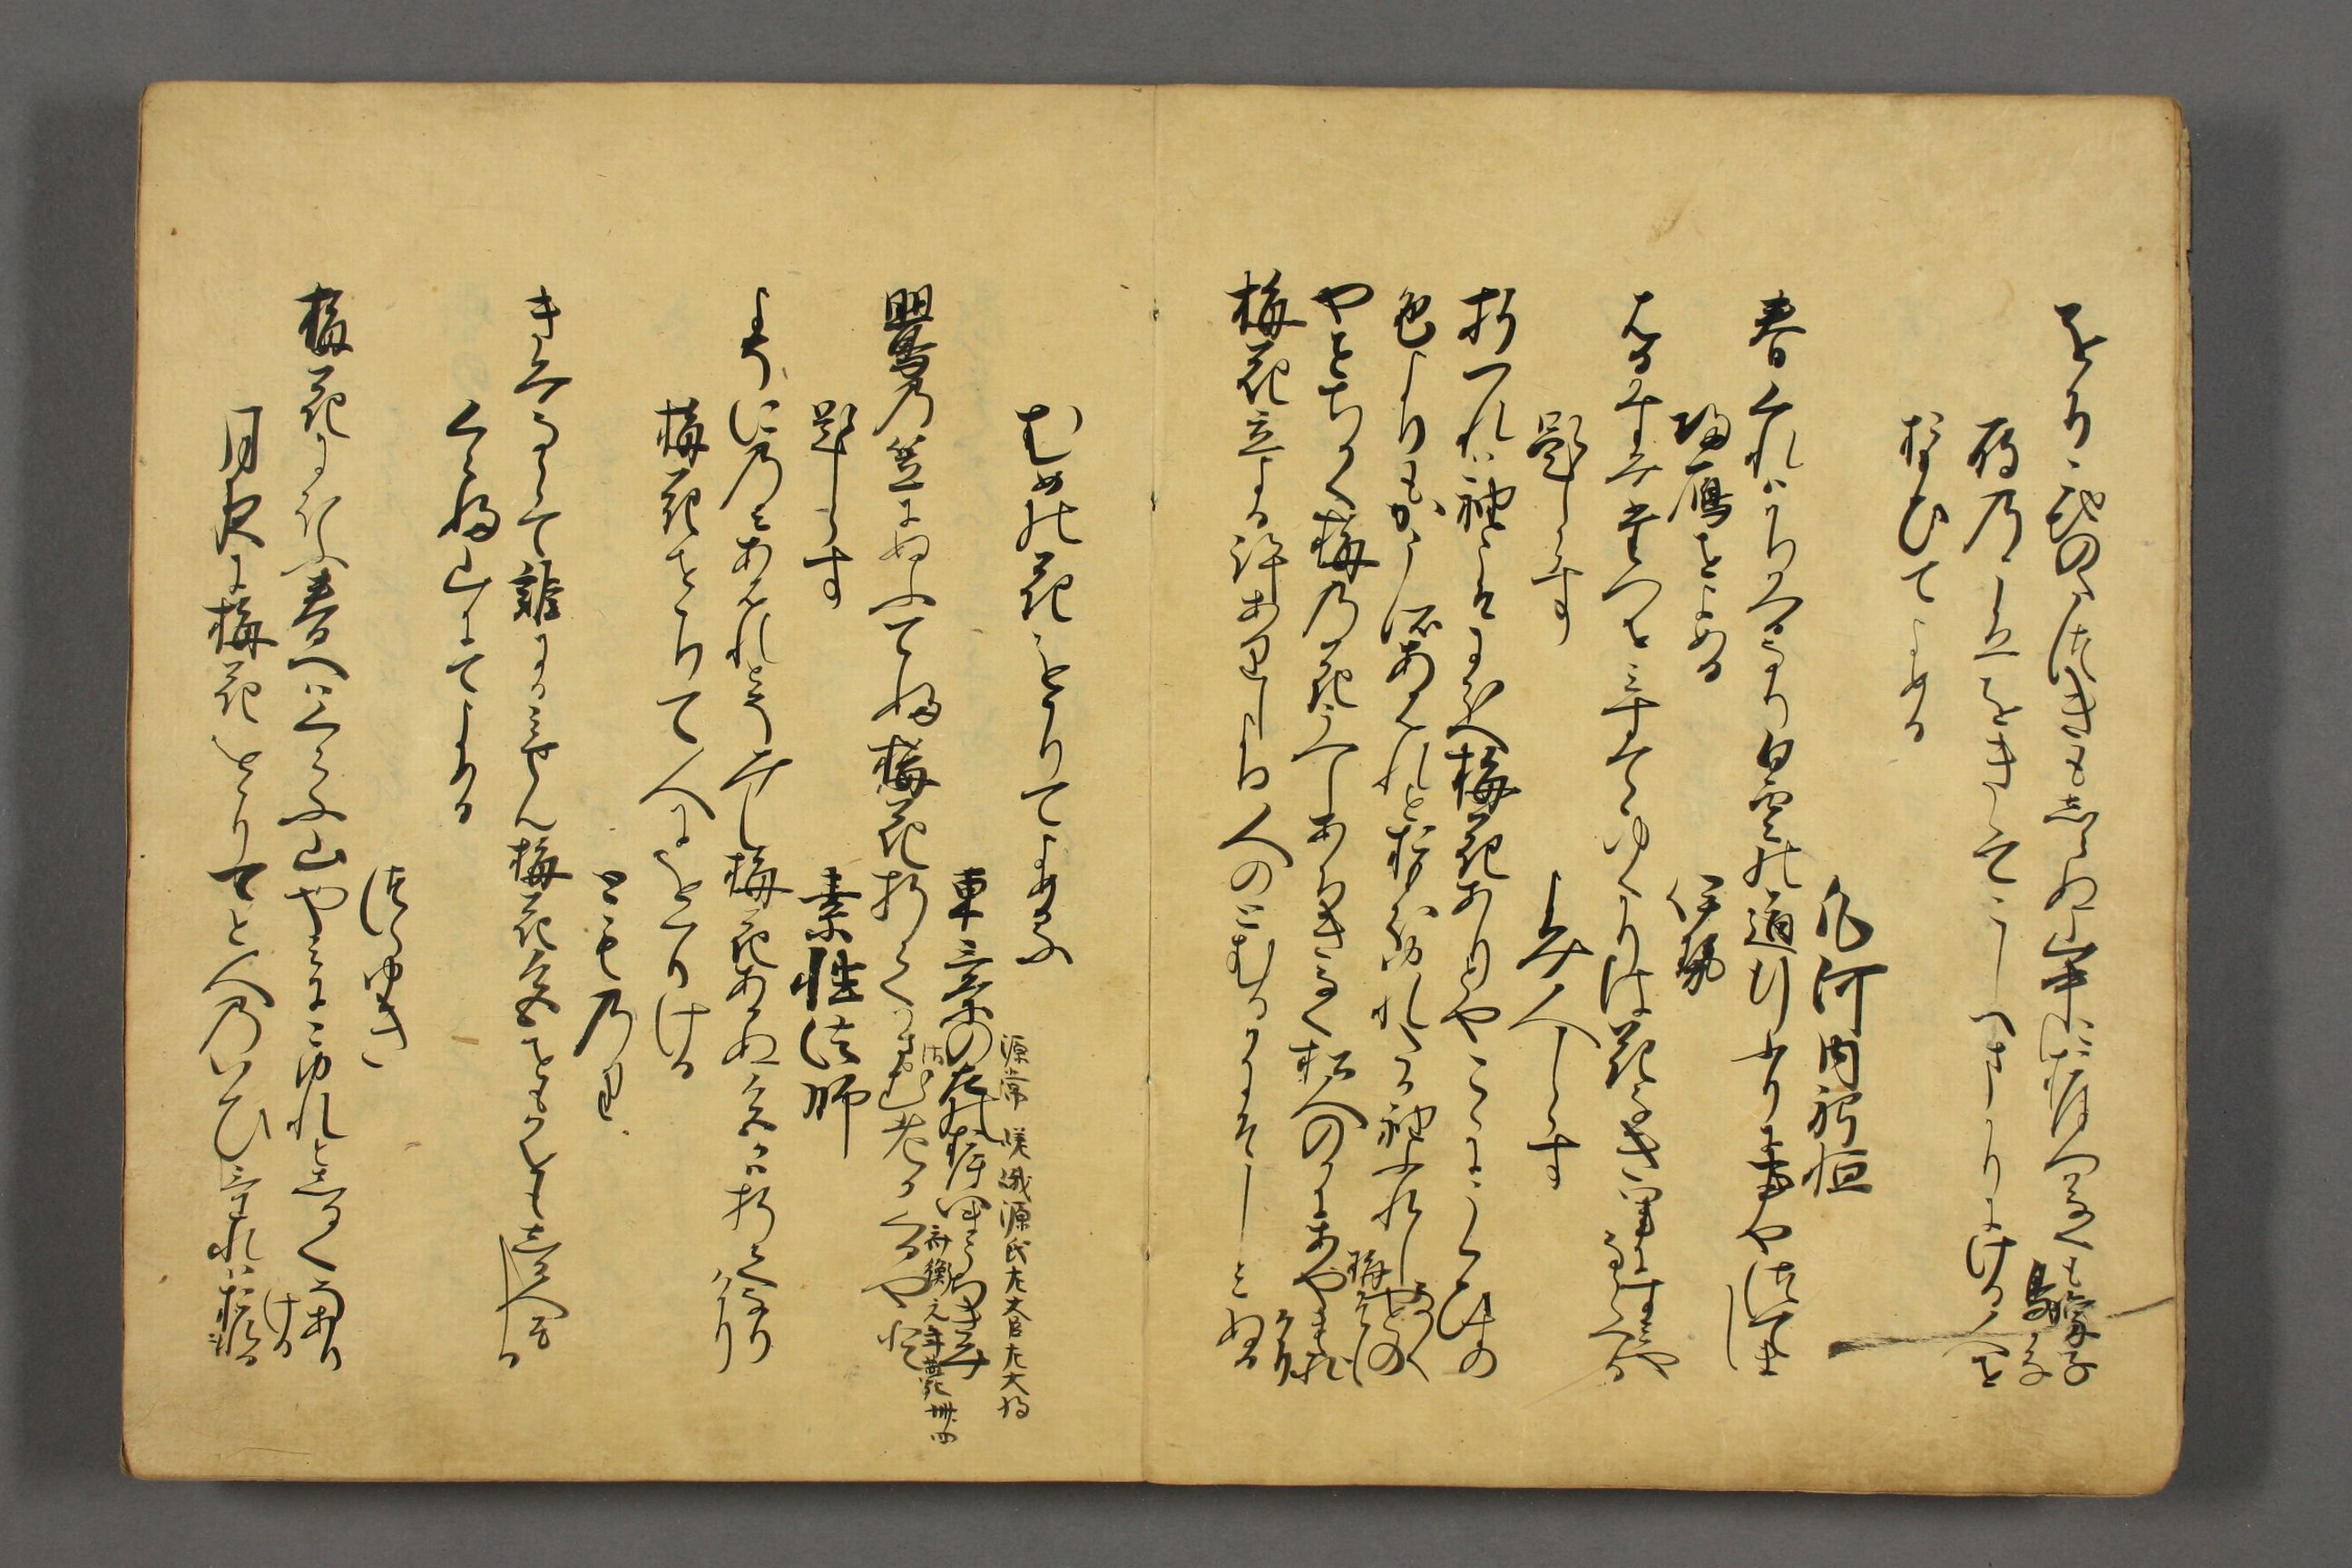 をちこちのたつきもしらぬ山中におほつかなくも喚子鳥哉
雁のこゑをきゝてこしへまかりにける人を
おもひてよめる
凡河内躬恒
春くれはかりかへるなり白雲の道行ふりに事やつてまし
帰雁をよめる
伊勢
はるかすみたつを見すてゝゆくかりは花なきさとにすみやならへる
題しらす
よみ人しらす
折つれは袖こそにほへ梅花ありとやこゝにうくひすのなく
色よりもかこそあはれとおもほゆれたか袖ふれしやとの梅そも
やとちかく梅の花うへしあちきなく松人のかにあやまたれけり
梅花立よる許ありしより人のとかむるかにそしみぬる
むめの花をおりてよめる
東三条の左のおほいまうちきみ
源常 嵯峨源氏左大臣左大将
斉衡元年薨 卌四
鶯の笠にぬふてふ梅花折てかさゝむ老かくるやと
題しらす
素性法師
よそにのみあはれとそみし梅花あかぬ色かは折てなりけり
梅花をおりて人にをくりける
とものり
きみならて誰にか見せん梅花色をもかをもしる人そしる
くらふ山にてよめる
つらゆき
梅花にほふ春へはくらふ山やみにこゆれとしるくそありける
月夜に梅花をおりてと人のいひけれはおるとて